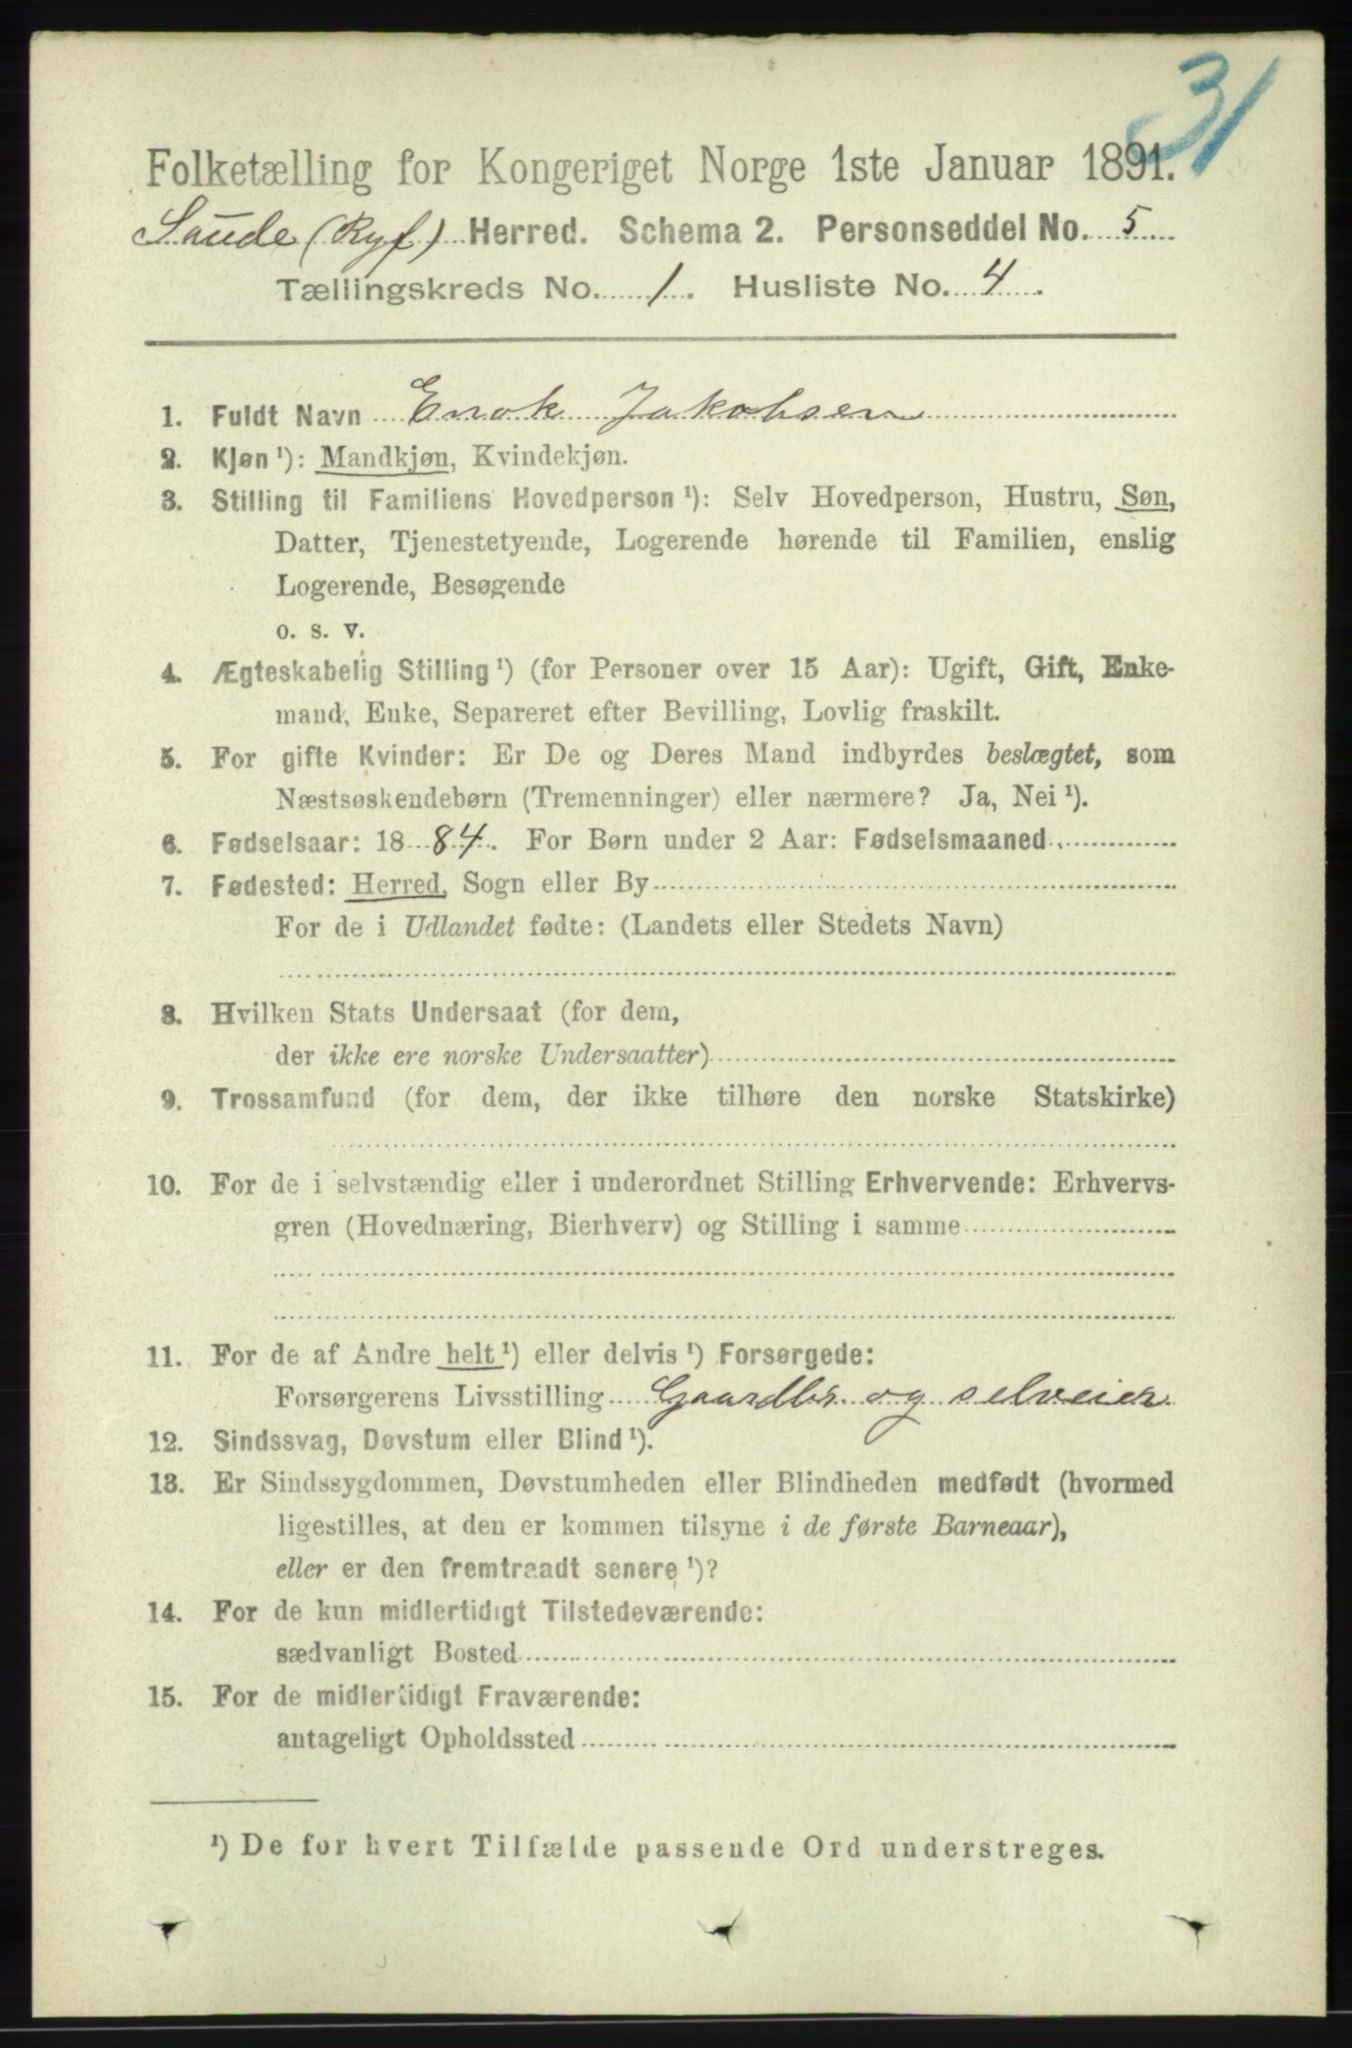 31
Folketælling for Kongeriget Norge 1ste Januar 1891.
Saude (Ryf) Herred. Schema 2. Personseddel No. 5
Tællingskreds No. 1. Husliste No. 4.
1. Fuldt Navn Enok Jakobsen
2. Kjøn ¹): Mandkjøn, Kvindekjøn.
3. Stilling til Familiens Hovedperson ¹): Selv Hovedperson, Hustru, Søn,
Datter, Tjenestetyende, Logerende hørende til Familien, enslig
Logerende, Besøgende
o. s. v.
4. Ægteskabelig Stilling ¹) (for Personer over 15 Aar): Ugift, Gift, Enke-
mand, Enke, Separeret efter Bevilling, Lovlig fraskilt.
5. For gifte Kvinder: Er De og Deres Mand indbyrdes beslægtet, som
Næstsøskendebørn (Tremenninger) eller nærmere? Ja, Nei ¹).
6. Fødselsaar: 1884. For Børn under 2 Aar: Fødselsmaaned
7. Fødested: Herred, Sogn eller By
For de i Udlandet fødte: (Landets eller Stedets Navn)
8. Hvilken Stats Undersaat (for dem,
der ikke ere norske Undersaatter)
9. Trossamfund (for dem, der ikke tilhøre den norske Statskirke)
10. For de i selvstændig eller i underordnet Stilling Erhvervende: Erhvervs-
gren (Hovednæring, Bierhverv) og Stilling i samme
11. For de af Andre helt ¹) eller delvis ¹) Forsørgede:
Forsørgerens Livsstilling Gaardbr. og selveier
12. Sindssvag, Døvstum eller Blind ¹).
13. Er Sindssygdommen, Døvstumheden eller Blindheden medfødt (hvormed
ligestilles, at den er kommen tilsyne i de første Barneaar),
eller er den fremtraadt senere ¹)?
14. For de kun midlertidigt Tilstedeværende:
sædvanligt Bosted
15. For de midlertidigt Fraværende:
antageligt Opholdssted
¹) De for hvert Tilfælde passende Ord understreges.